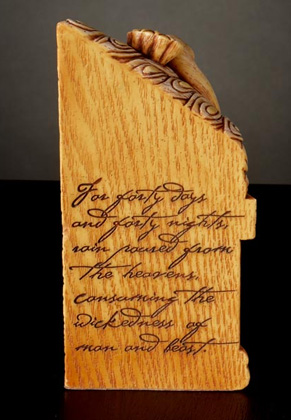 For forty days
and forty nights,
rain poured from
the heavens,
consuming the
wickedness of
man and beast.